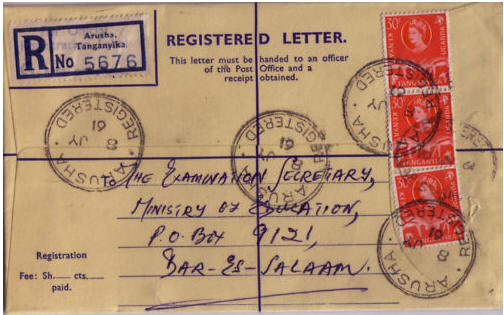 Arusha,
Tanganyika
R No 5676
REGISTERED LETTER.
This letter must be handed to an officer
of the Post Office and a
receipt obtained.
30c
KENYA
UGANDA
TANGANYIKA
30c
KENYA
UGANDA
TANGANYIKA
30c
KENYA
REGISTERED
ARUSHA
8 JY 61
REGISTERED
ARUSHA
8 JY 61
REGISTERED
ARUSHA
8 JY 61
REGISTERED
ARUSHA
8 JY 61
THE EXAMINATION SECRETARY,
MINISTRY OF EDUCATION,
P.O. BOX 9121,
DAR-ES-SALAAM.
Registration
Fee: Sh. cts.
paid.